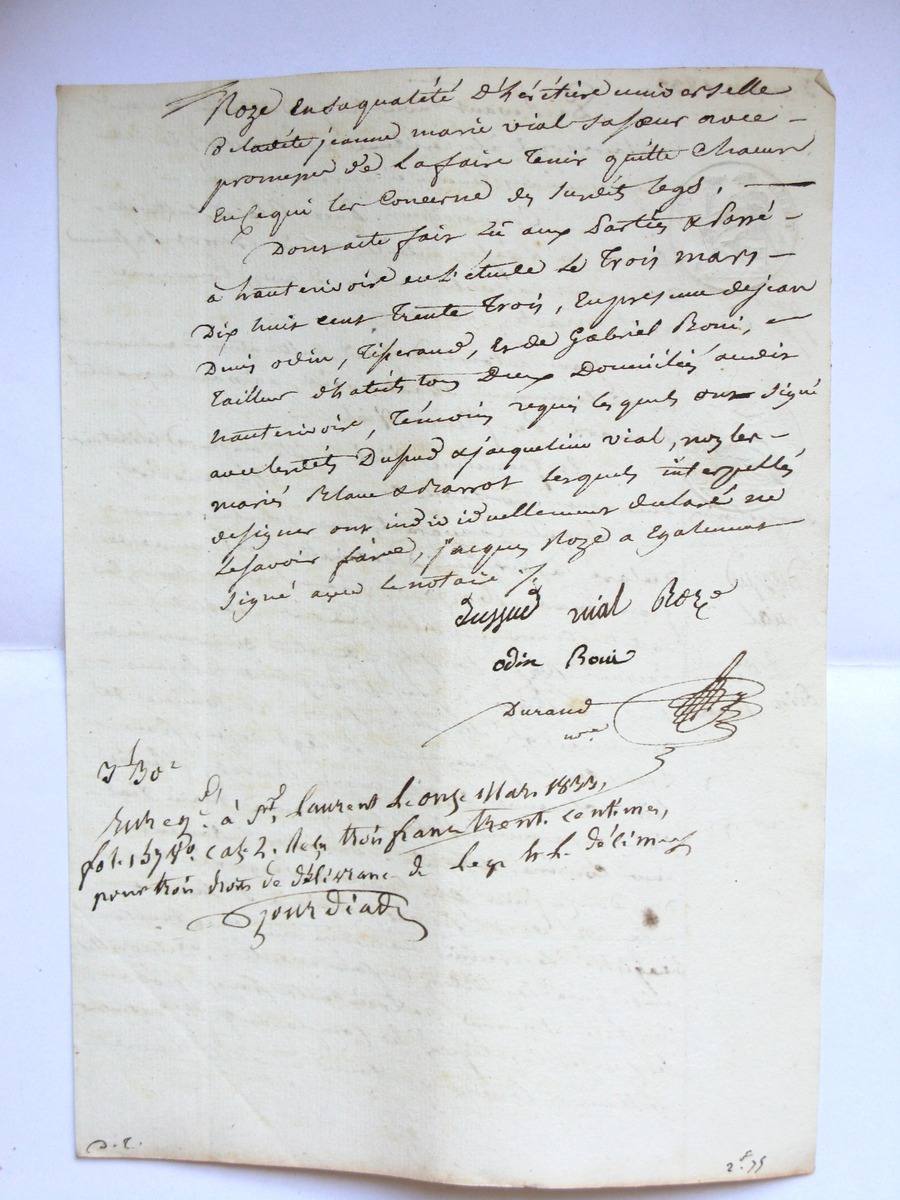 Roze en sa qualité d'héritière universelle
de ladite jeanne marie vial sa sœur avec
promesse de la faire tenir quitte chacun
en ce qui les concerne des susdits legs.
Dont acte fait lû aux parties & passé
à hauterivoire en l'étude le trois mars
Dix huit cent trente trois, en présence de jean
Denis odin, tisserand, et de Gabriel Roni,
tailleur d'habits tous deux domiciliés audit
hauterivoire, témoins requis lesquels ont signé
avec lesdits Dussud & jacqueline vial, non les
mariés Blanc & lesquels interpellés
de signer ont individuellement déclaré ne
le savoir faire, jacques Roze a également
signé avec le notaire ./.
dussud vial Roze
odin Roni
Durand
nre
3f 30c
Enregt. à St. laurent le onze Mars 1833,
fol. 157 Vo. case 2. Reçu trois francs trente centimes,
pour trois droits de délivrance de legs décimes
jourdiad
2f.75